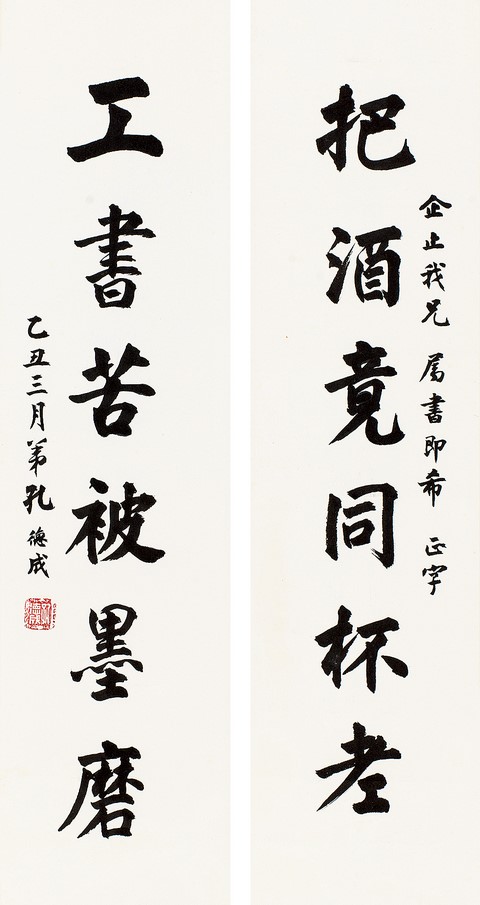 企止我兄 属書即希 正字
把酒竟同杯老
工書苦被墨磨
乙丑三月弟孔德成